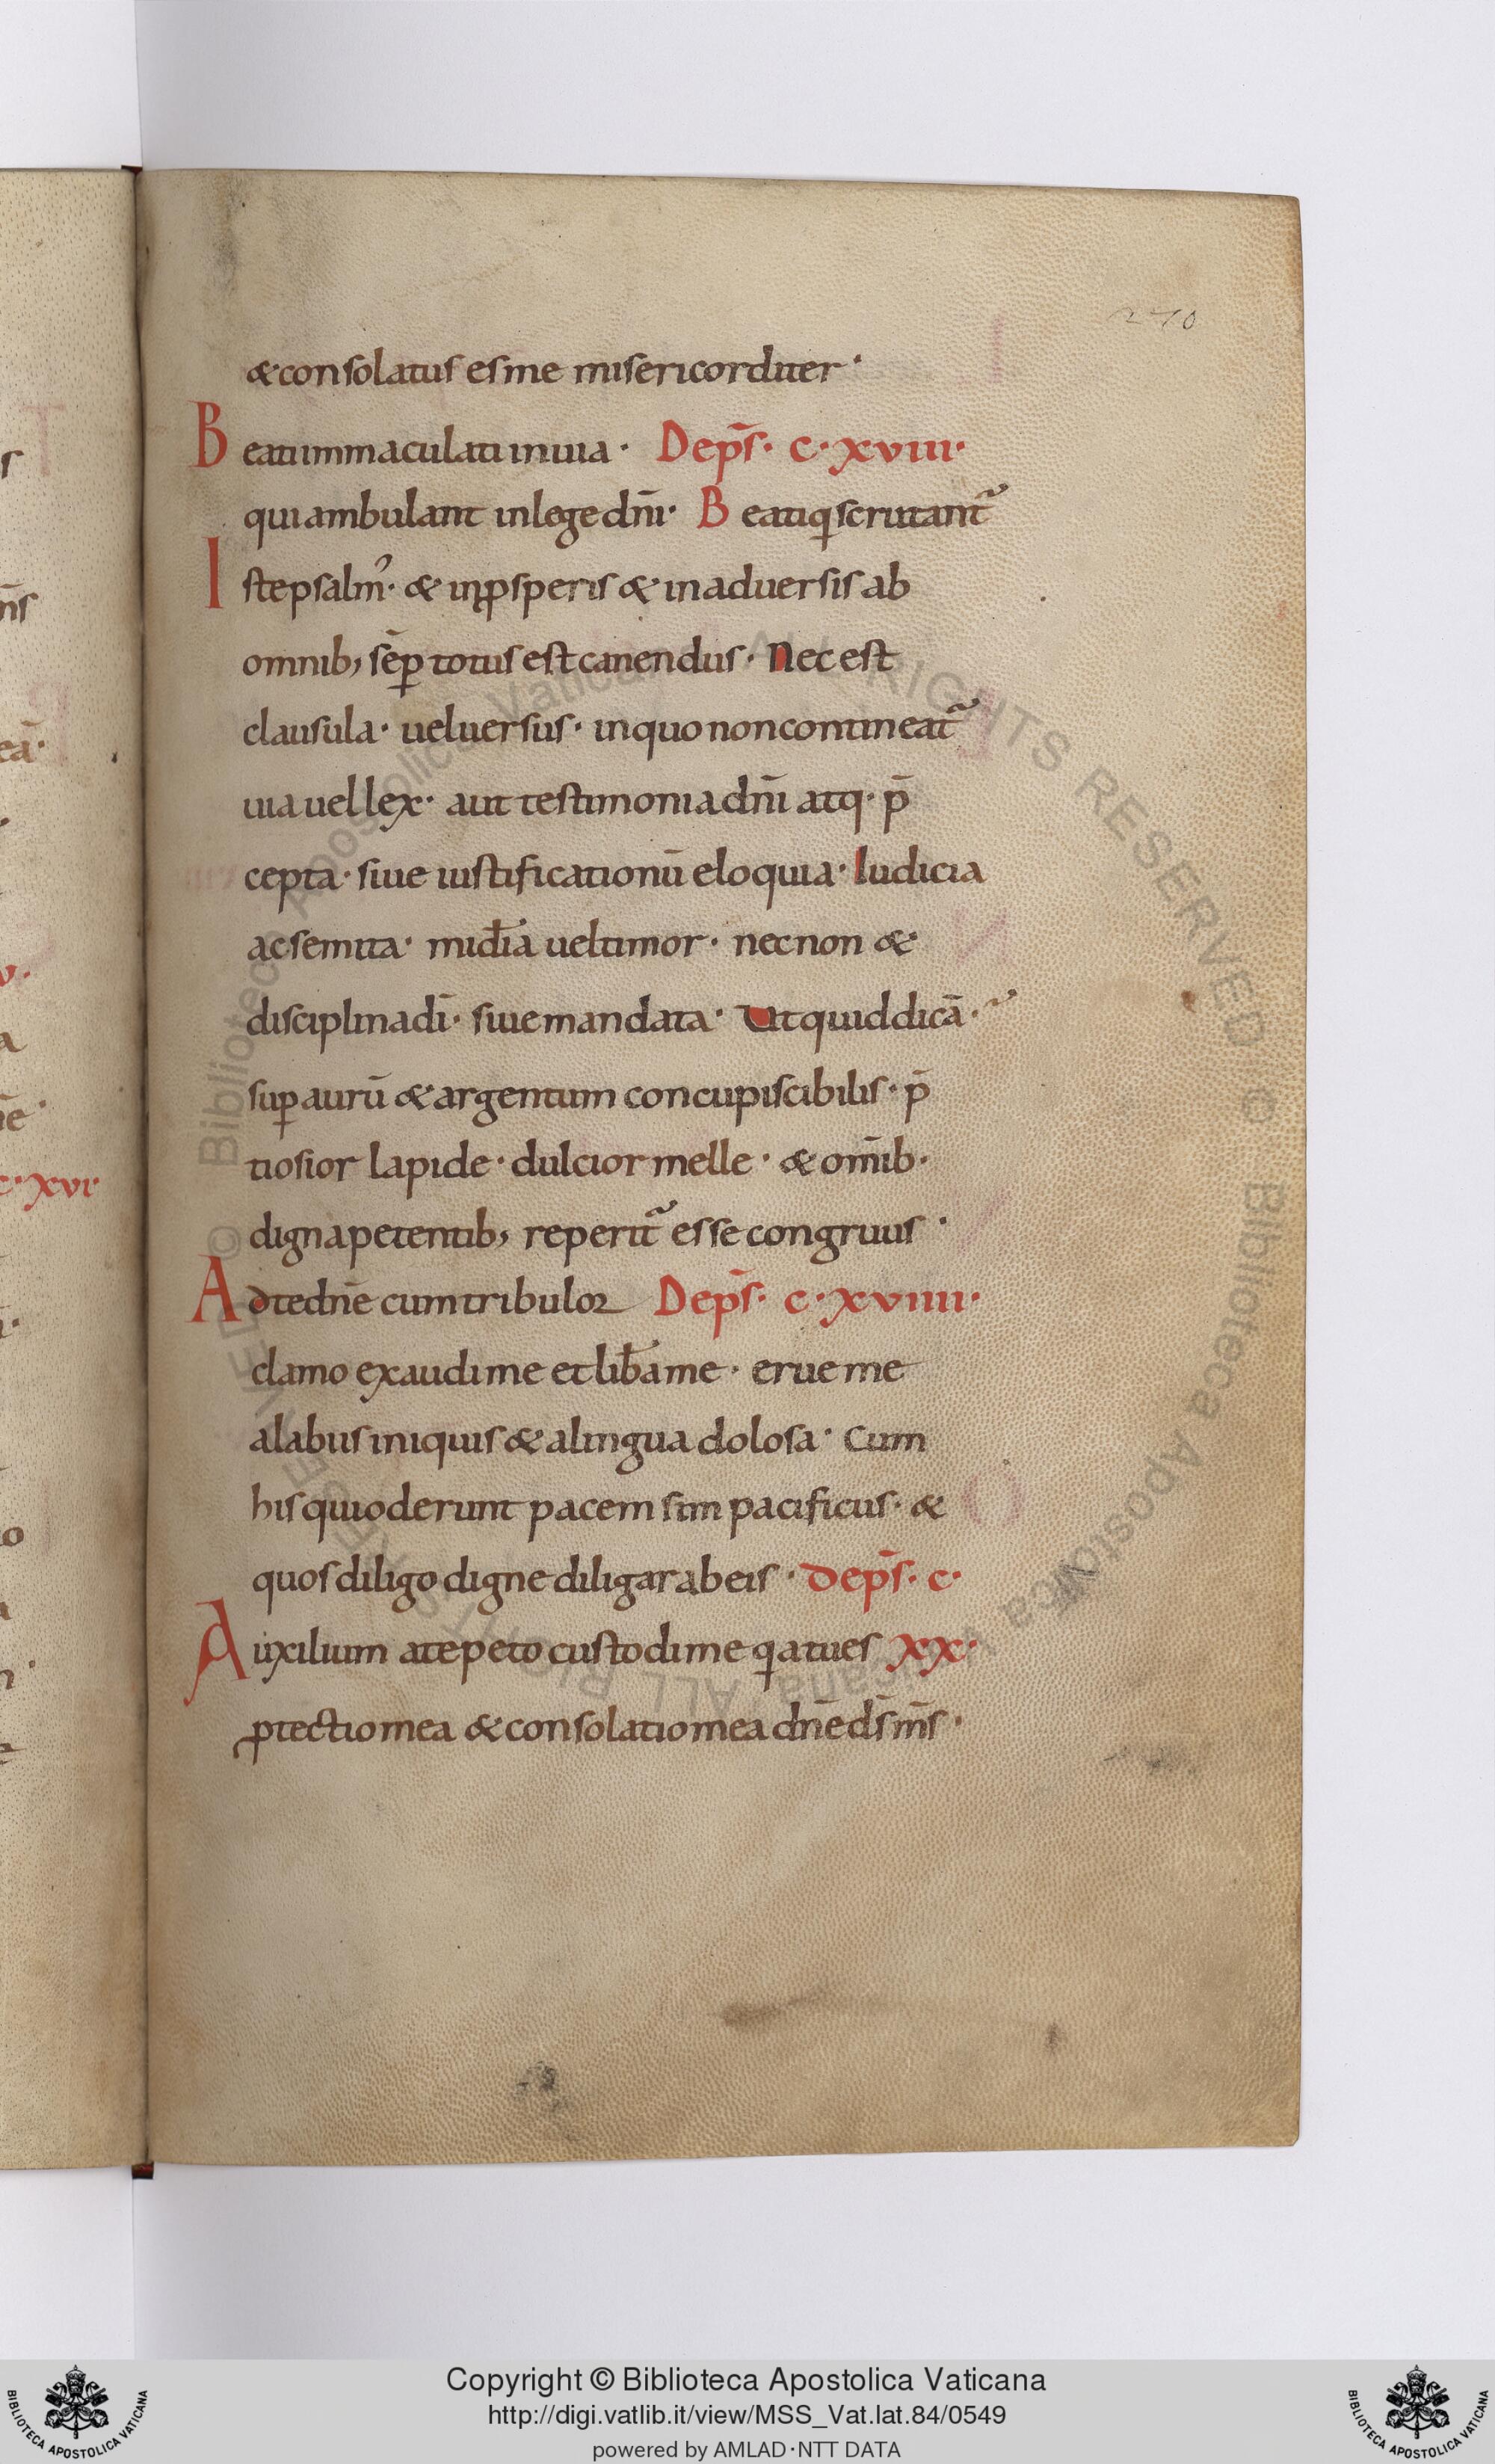 270
& consolatus es me misericorditer·
Beati immaculati in uia· De ps̄· c·xviii·
qui ambulant in lege dn̄i· Beati q scrutant᷑
Iste psalm᾽· & in ꝓsperis & in aduersis ab
omnib; sēp totus est canendus· Nec est
clausula· uel uersus· in quo non contineat᷑
uia uel lex· aut testimonia dn̄i atq· p̄
cepta· siue iustificationū eloquia· Iudicia
ac semita· mi͞dia uel timor· nec non &
disciplina dī· siue mandata· Ut quid dicā·
suꝑ aurū & argentum concupiscibilis· p̄
tiosior lapide· dulcior melle· & om̄ib·
digna petentib; reperit᷑ esse congruus·
Ad te dn̄e cum tribulor De ps̄· c·xviiii·
clamo exaudi me et lib̄a me· erue me
a labiis iniquis & a lingua dolosa· Cum
his qui oderunt pacem sim pacificus· &
quos diligo digne diligar ab eis· De ps̄· c·
Auxilium a te peto custodi me q a tu es xx·
ꝓtectio mea & consolatio mea dn̄e ds̄ ms̄·
Copyright © Biblioteca Apostolica Vaticana
http://digi.vatlib.it/view/MSS_Vat.lat.84/0549
powered by AMLAD·NTT DATA